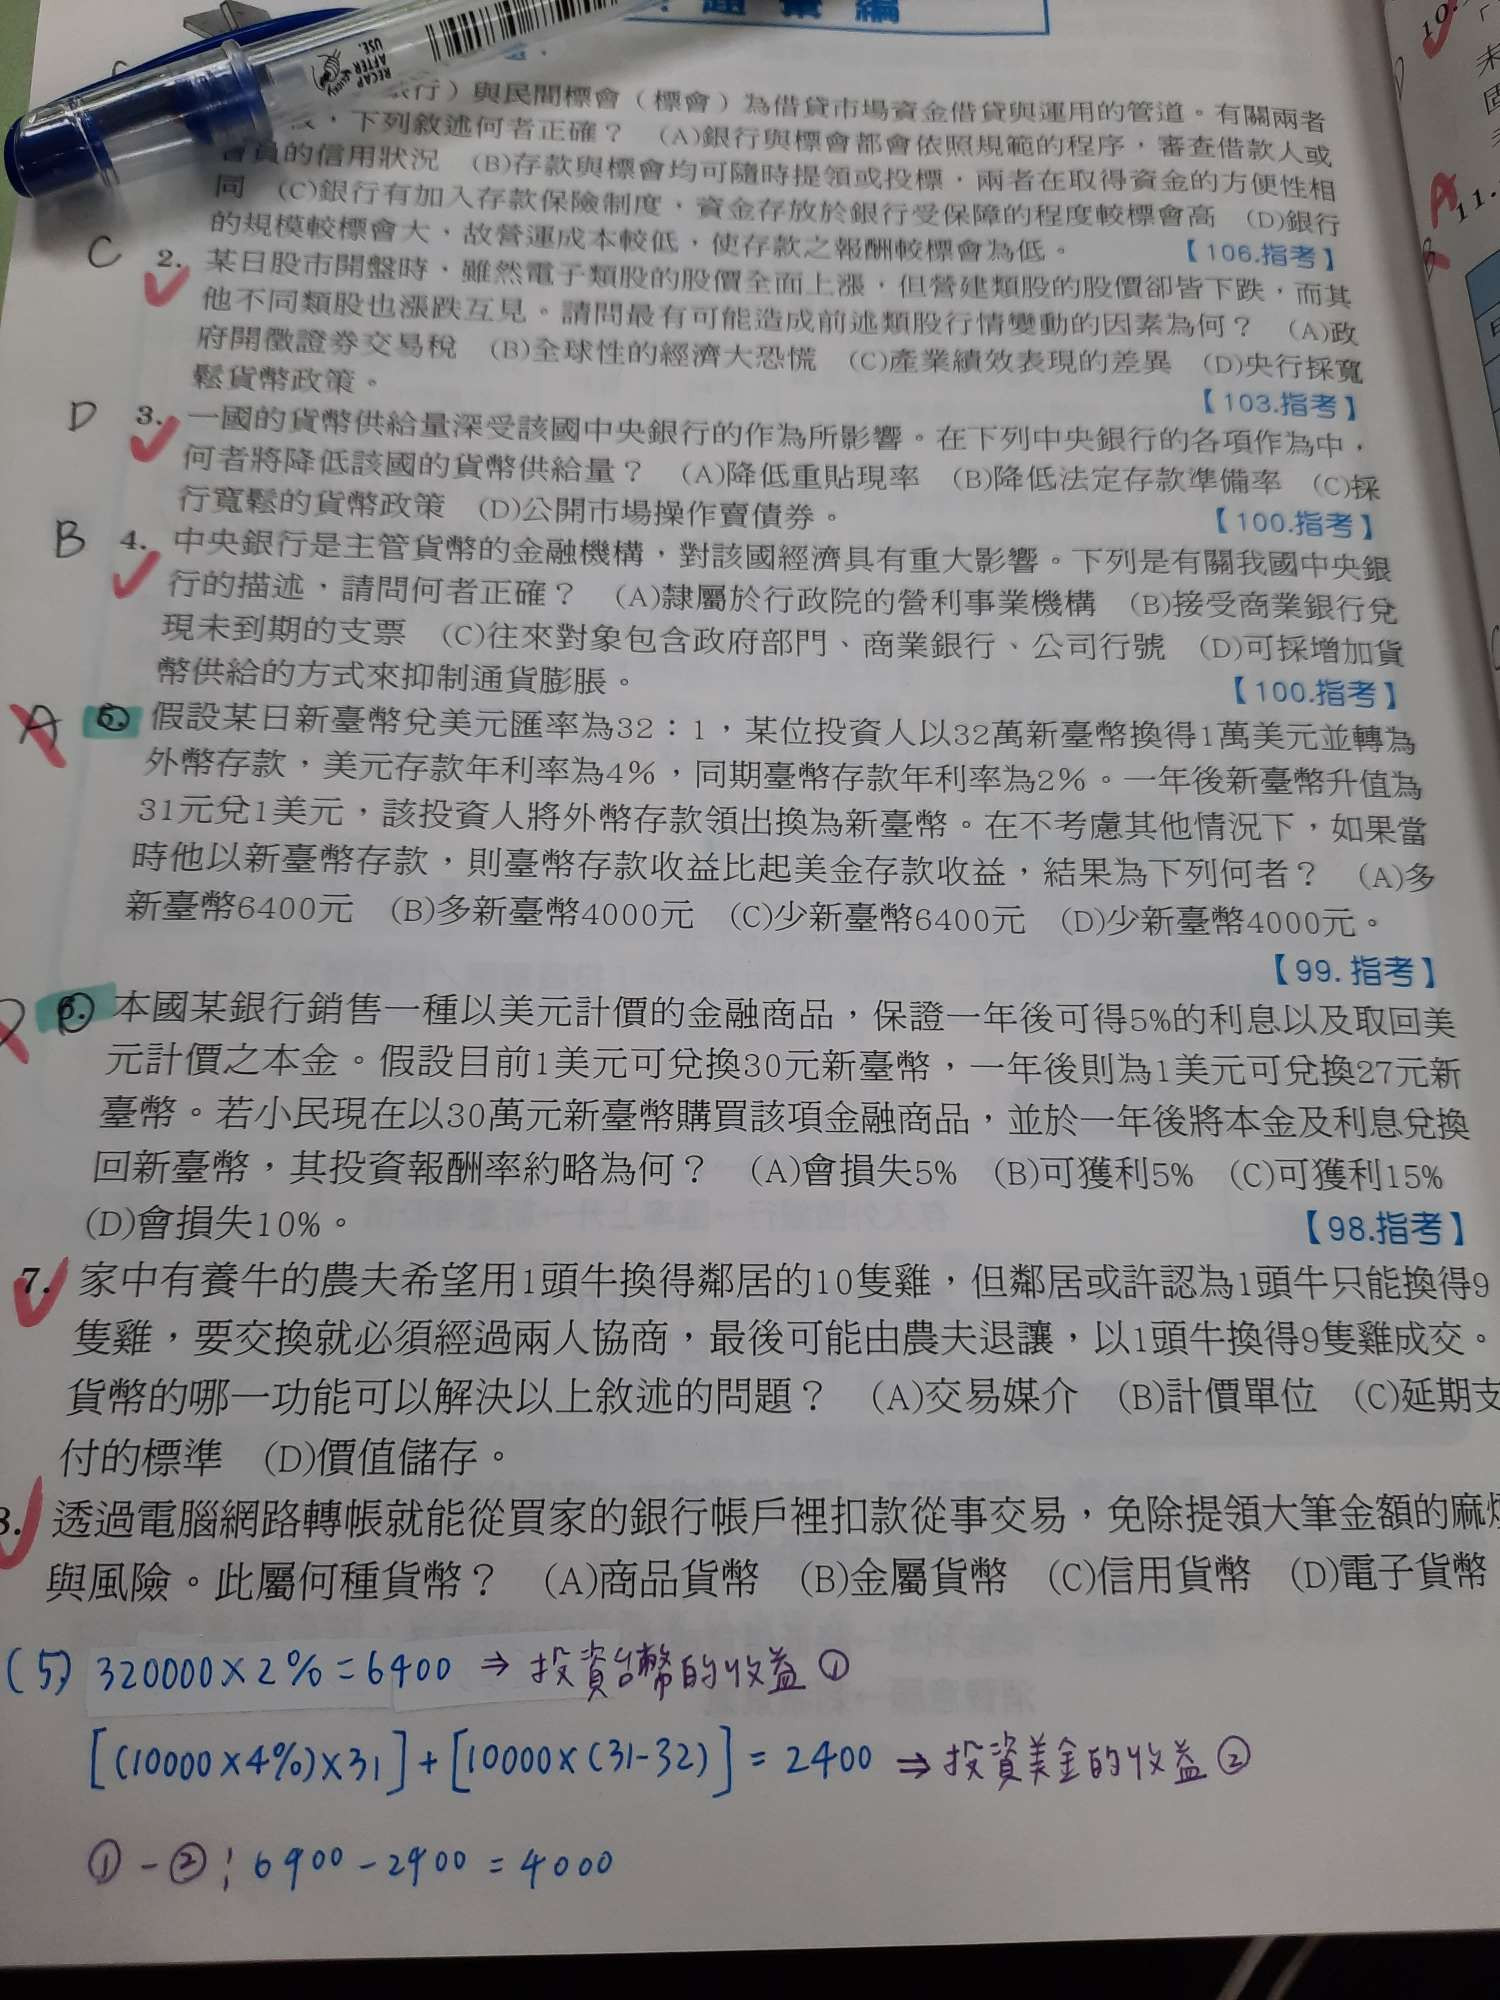 題彙編
RECAP AFTER USE.
行）與民間標會（標會）為借貸市場資金借貸與運用的管道。有關兩者
，下列敘述何者正確？ (A)銀行與標會都會依照規範的程序，審查借款人或
會員的信用狀況 (B)存款與標會均可隨時提領或投標，兩者在取得資金的方便性相
同 (C)銀行有加入存款保險制度，資金存放於銀行受保障的程度較標會高 (D)銀行
的規模較標會大，故營運成本較低，使存款之報酬較標會為低。 【106.指考】
C 2. 某日股市開盤時，雖然電子類股的股價全面上漲，但營建類股的股價卻皆下跌，而其
他不同類股也漲跌互見。請問最有可能造成前述類股行情變動的因素為何？ (A)政
府開徵證券交易稅 (B)全球性的經濟大恐慌 (C)產業績效表現的差異 (D)央行採寬
鬆貨幣政策。 【103.指考】
D 3. 一國的貨幣供給量深受該國中央銀行的作為所影響。在下列中央銀行的各項作為中，
何者將降低該國的貨幣供給量？ (A)降低重貼現率 (B)降低法定存款準備率 (C)採
行寬鬆的貨幣政策 (D)公開市場操作賣債券。 【100.指考】
B 4. 中央銀行是主管貨幣的金融機構，對該國經濟具有重大影響。下列是有關我國中央銀
行的描述，請問何者正確？ (A)隸屬於行政院的營利事業機構 (B)接受商業銀行兌
現未到期的支票 (C)往來對象包含政府部門、商業銀行、公司行號 (D)可採增加貨
幣供給的方式來抑制通貨膨脹。 【100.指考】
A 5. 假設某日新臺幣兌美元匯率為32：1，某位投資人以32萬新臺幣換得1萬美元並轉為
外幣存款，美元存款年利率為4%，同期臺幣存款年利率為2%。一年後新臺幣升值為
31元兌1美元，該投資人將外幣存款領出換為新臺幣。在不考慮其他情況下，如果當
時他以新臺幣存款，則臺幣存款收益比起美金存款收益，結果為下列何者？ (A)多
新臺幣6400元 (B)多新臺幣4000元 (C)少新臺幣6400元 (D)少新臺幣4000元。
【99.指考】
6. 本國某銀行銷售一種以美元計價的金融商品，保證一年後可得5%的利息以及取回美
元計價之本金。假設目前1美元可兌換30元新臺幣，一年後則為1美元可兌換27元新
臺幣。若小民現在以30萬元新臺幣購買該項金融商品，並於一年後將本金及利息兌換
回新臺幣，其投資報酬率約略為何？ (A)會損失5% (B)可獲利5% (C)可獲利15%
(D)會損失10%。 【98.指考】
7. 家中有養牛的農夫希望用1頭牛換得鄰居的10隻雞，但鄰居或許認為1頭牛只能換得9
隻雞，要交換就必須經過兩人協商，最後可能由農夫退讓，以1頭牛換得9隻雞成交。
貨幣的哪一功能可以解決以上敘述的問題？ (A)交易媒介 (B)計價單位 (C)延期支
付的標準 (D)價值儲存。
8. 透過電腦網路轉帳就能從買家的銀行帳戶裡扣款從事交易，免除提領大筆金額的麻煩
與風險。此屬何種貨幣？ (A)商品貨幣 (B)金屬貨幣 (C)信用貨幣 (D)電子貨幣
(5) 320000×2%=6400 ⇒ 投資台幣的收益①
[(10000×4%)×31]+[10000×(31-32)]=2400 ⇒ 投資美金的收益②
①-②：6400-2400=4000
10.
A 11.